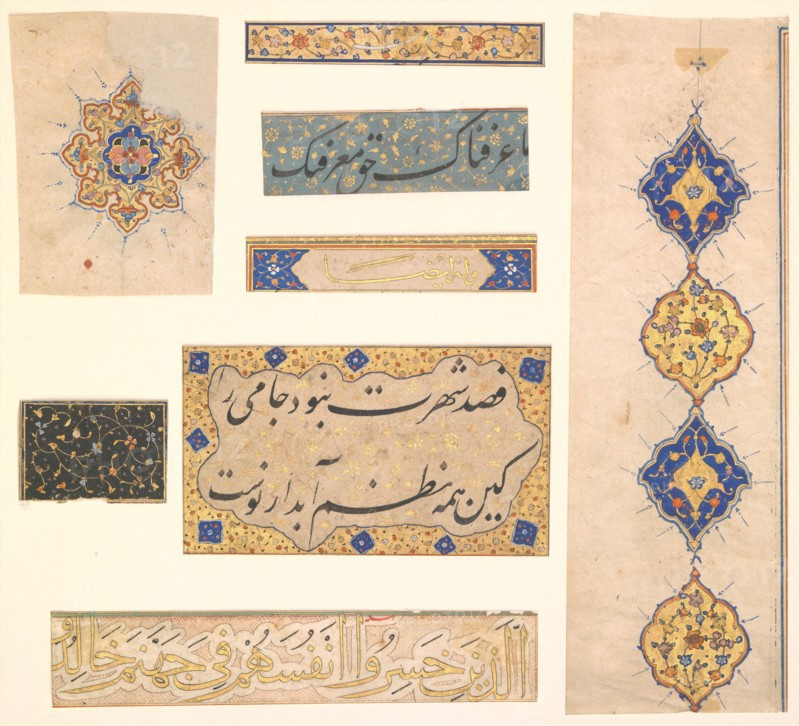 ما عرفناک حق معرفتک
وله ایضا
قصد شهرت نبود جامی را
کین همه نظم آبدار نوشت
الَّذِينَ خَسِرُوا انْفُسَهُمْ فِي جَهَنَّمَ خَالِدُو